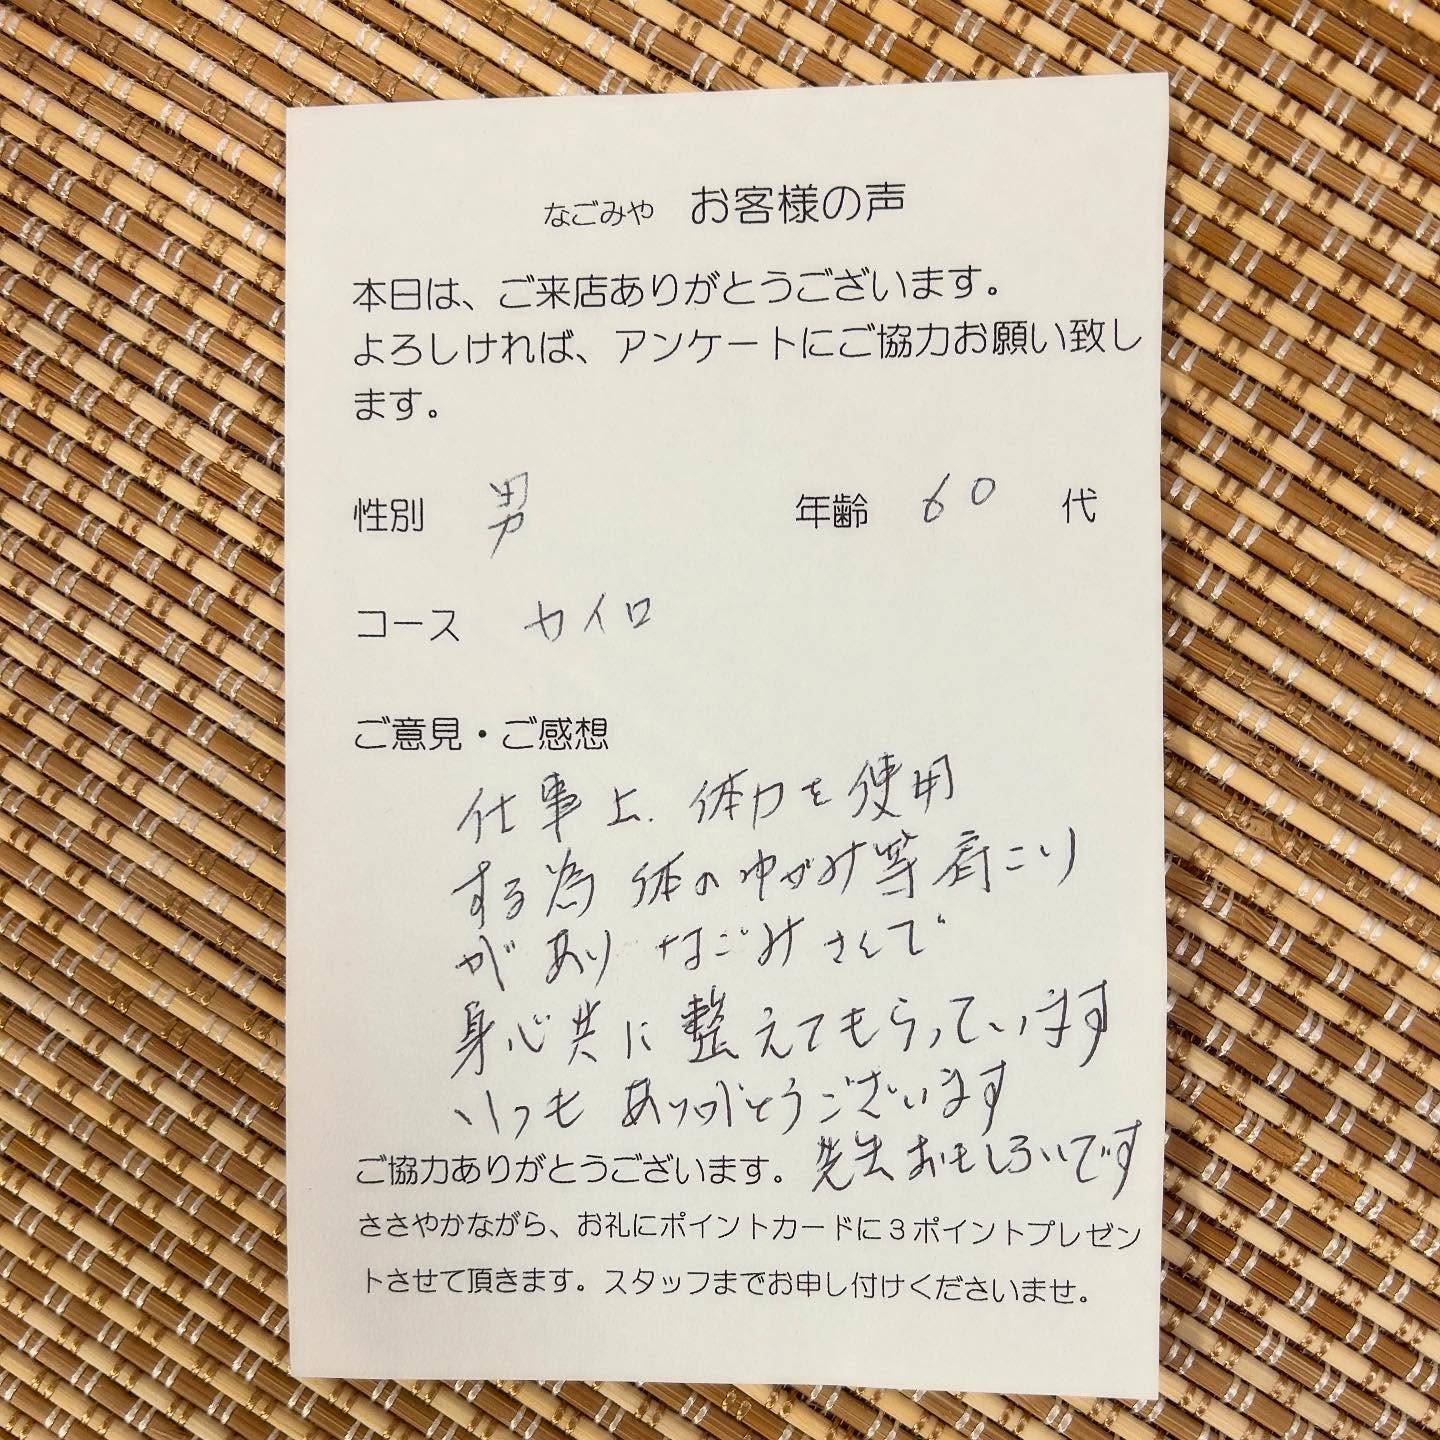 なごみや　お客様の声
本日は、ご来店ありがとうございます。
よろしければ、アンケートにご協力お願い致し
ます。
性別　男　年齢　60　代
コース　カイロ
ご意見・ご感想
仕事上、体力を使用
する為 体のゆがみ等 肩こり
があり なごみさんで
身心共に整えてもらっています
いつも ありがとうございます
ご協力ありがとうございます。 先生おもしろいです
ささやかながら、お礼にポイントカードに３ポイントプレゼン
トさせて頂きます。スタッフまでお申し付けくださいませ。